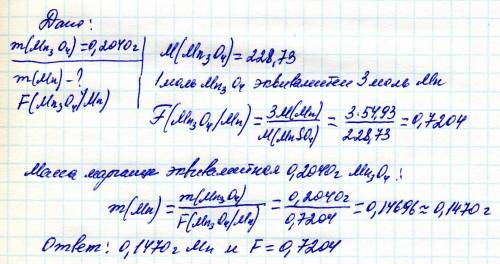 Дано:
m(Mn₃O₄)=0,2040г
m(Mn)-?
F(Mn₃O₄/Mn)
M(Mn₃O₄)=228,73
1 моль Mn₃O₄ эквивалентен 3 моль Mn
F(Mn₃O₄/Mn)=3M(Mn)/M(MnSO₄)=3·54,93/228,73=0,7204
Масса марганца эквивалентная 0,2040г Mn₃O₄:
m(Mn)=m(Mn₃O₄)/F(Mn₃O₄/Mn)=0,2040г/0,7204=0,14696≈0,1470г
Ответ: 0,1470г Mn и F=0,7204